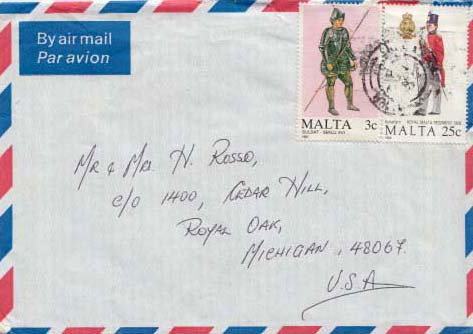 By air mail
Par avion
MALTA 3c
SULDAT - SEKLU XVI
ROYAL MALTA REGIMENT
MALTA 25c
MR & MRS. H. ROSSO,
C/O 1400, CEDAR HILL,
ROYAL OAK,
MICHIGAN, 48067.
U.S.A